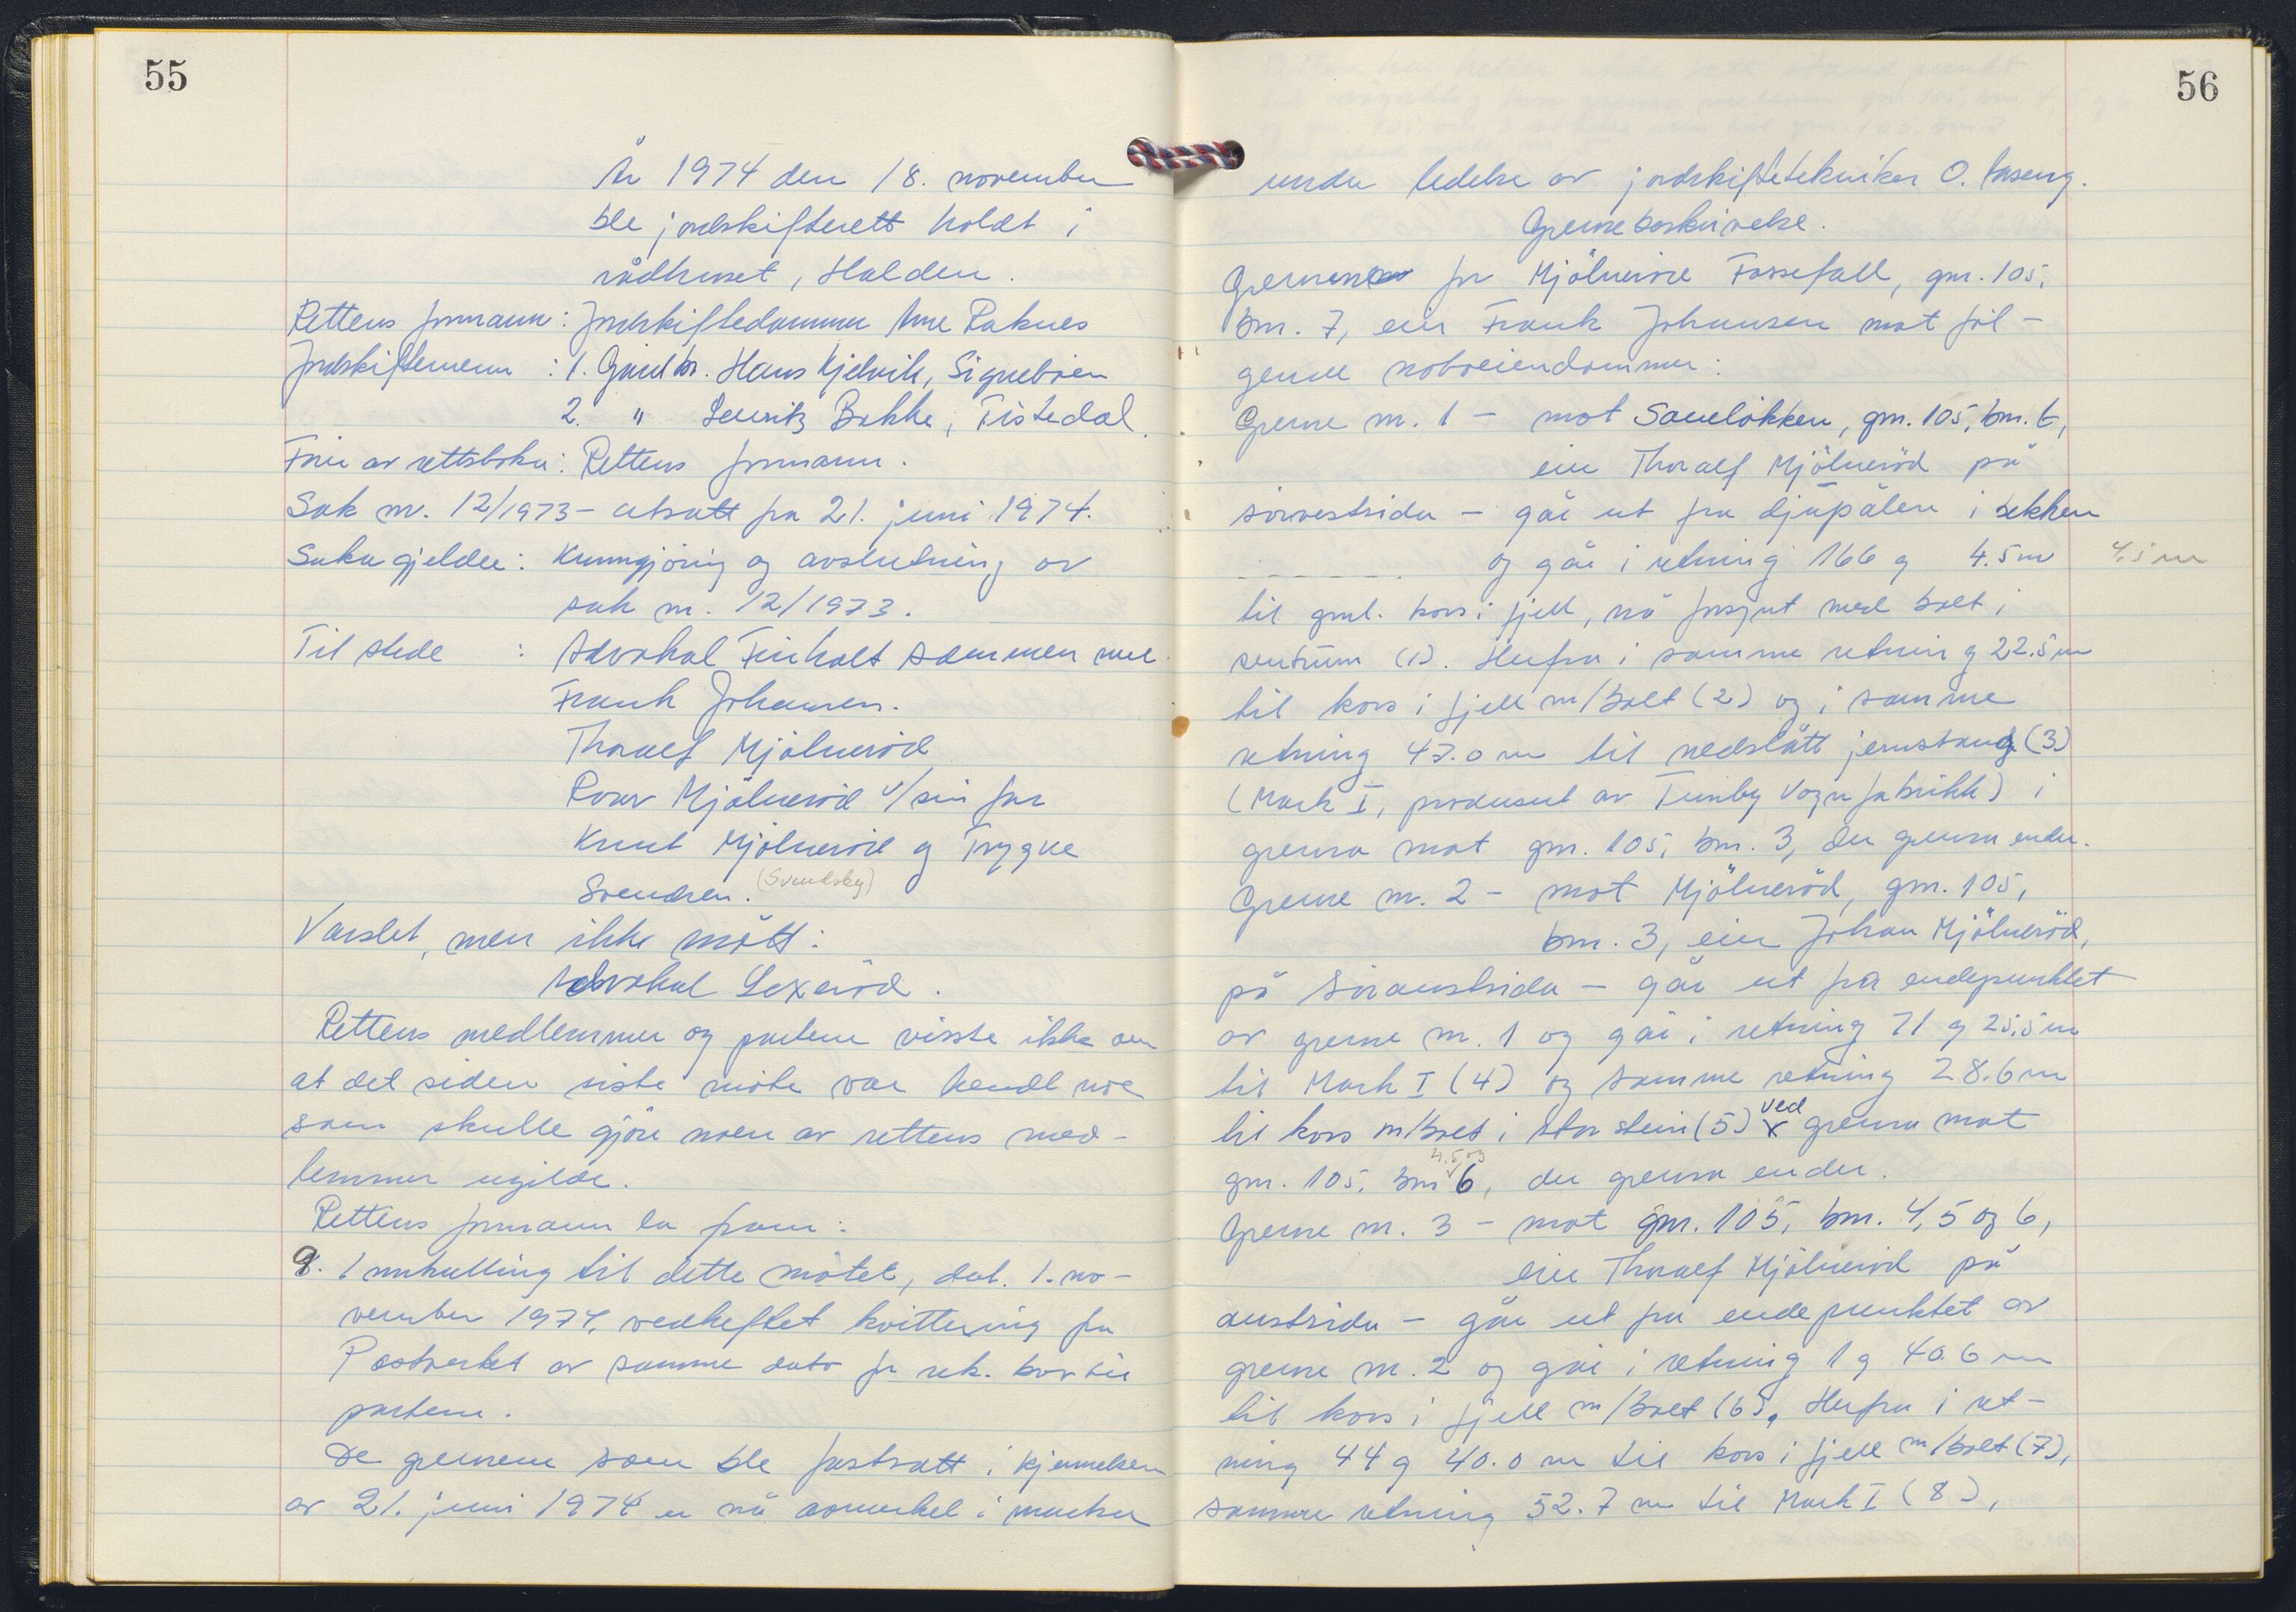 55
År 1974 den 18. november
ble jordskifterett holdt i
rådhuset, Halden.
Rettens formann: Jordskiftedommer Arne Raknes
Jordskiftemenn : 1. Gårdbr. Hans Kjelvik, Signebøen
2. " Lauritz Bakke, Tistedal.
Fører av rettsboka: Rettens formann.
Sak nr. 12/1973 - utsatt fra 21. juni 1974.
Saka gjelder: Kunngjøring og avslutning av
sak nr. 12/1973.
Til stede : Advokat Finholt sammen med
Frank Johansen.
Thoralf Mjølnerød
Roar Mjølnerød v/sin far
Knut Mjølnerød og Trygve
Svendsen. (Svendsby)
Varslet, men ikke møtt:
Advokat Lexerød.
Rettens medlemmer og partene visste ikke om
at det siden siste møte var hendt noe
som skulle gjøre noen av rettens med-
lemmer ugilde.
Rettens formann la fram:
9. Innkalling til dette møtet, dat. 1. no-
vember 1974, vedheftet kvittering fra
Postverket av samme dato for rek. brev til
partene.
De grensene som ble fastsatt i kjennelsen
av 21. juni 1974 er nå avmerket i marka
56
under ledelse av jordskiftetekniker O. Aaseng.
Grensebeskrivelse.
Grensene for Mjølnerød Fossefall, gnr. 105,
bnr. 7, eier Frank Johansen mot føl-
gende naboeiendommer:
Grense nr. 1 - mot Saueløkken, gnr. 105, bnr. 6,
eier Thoralf Mjølnerød på
sørvestsida - går ut fra djupålen i bekken
og går i retning 166 g 4.5 m 4.5 m
til gml. kors i fjell, nå forsynt med bolt i
sentrum (1). Herfra i samme retning 22.5 m
til kors i fjell m/bolt (2) og i samme
retning 47.0 m til nedslått jernstang (3)
(Mark I, produsent av Tuneby Vognfabrikk) i
grensa mot gnr. 105, bnr. 3, der grensa ender.
Grense nr. 2 - mot Mjølnerød, gnr. 105,
bnr. 3, eier Johan Mjølnerød,
på søraustsida - går ut fra endepunktet
av grense nr. 1 og går i retning 71 g 25.5 m
til Mark I (4) og samme retning 28.6 m
til kors m/bolt i stor stein (5) ved grensa mot
gnr. 105, bnr. 4, 5 og 6, der grensa ender.
Grense nr. 3 - mot gnr. 105, bnr. 4, 5 og 6,
eier Thoralf Mjølnerød på
austsida - går ut fra endepunktet av
grense nr. 2 og går i retning 1 g 40.6 m
til kors i fjell m/bolt (6). Herfra i ret-
ning 44 g 40.0 m til kors i fjell m/bolt (7),
samme retning 52.7 m til Mark I (8),